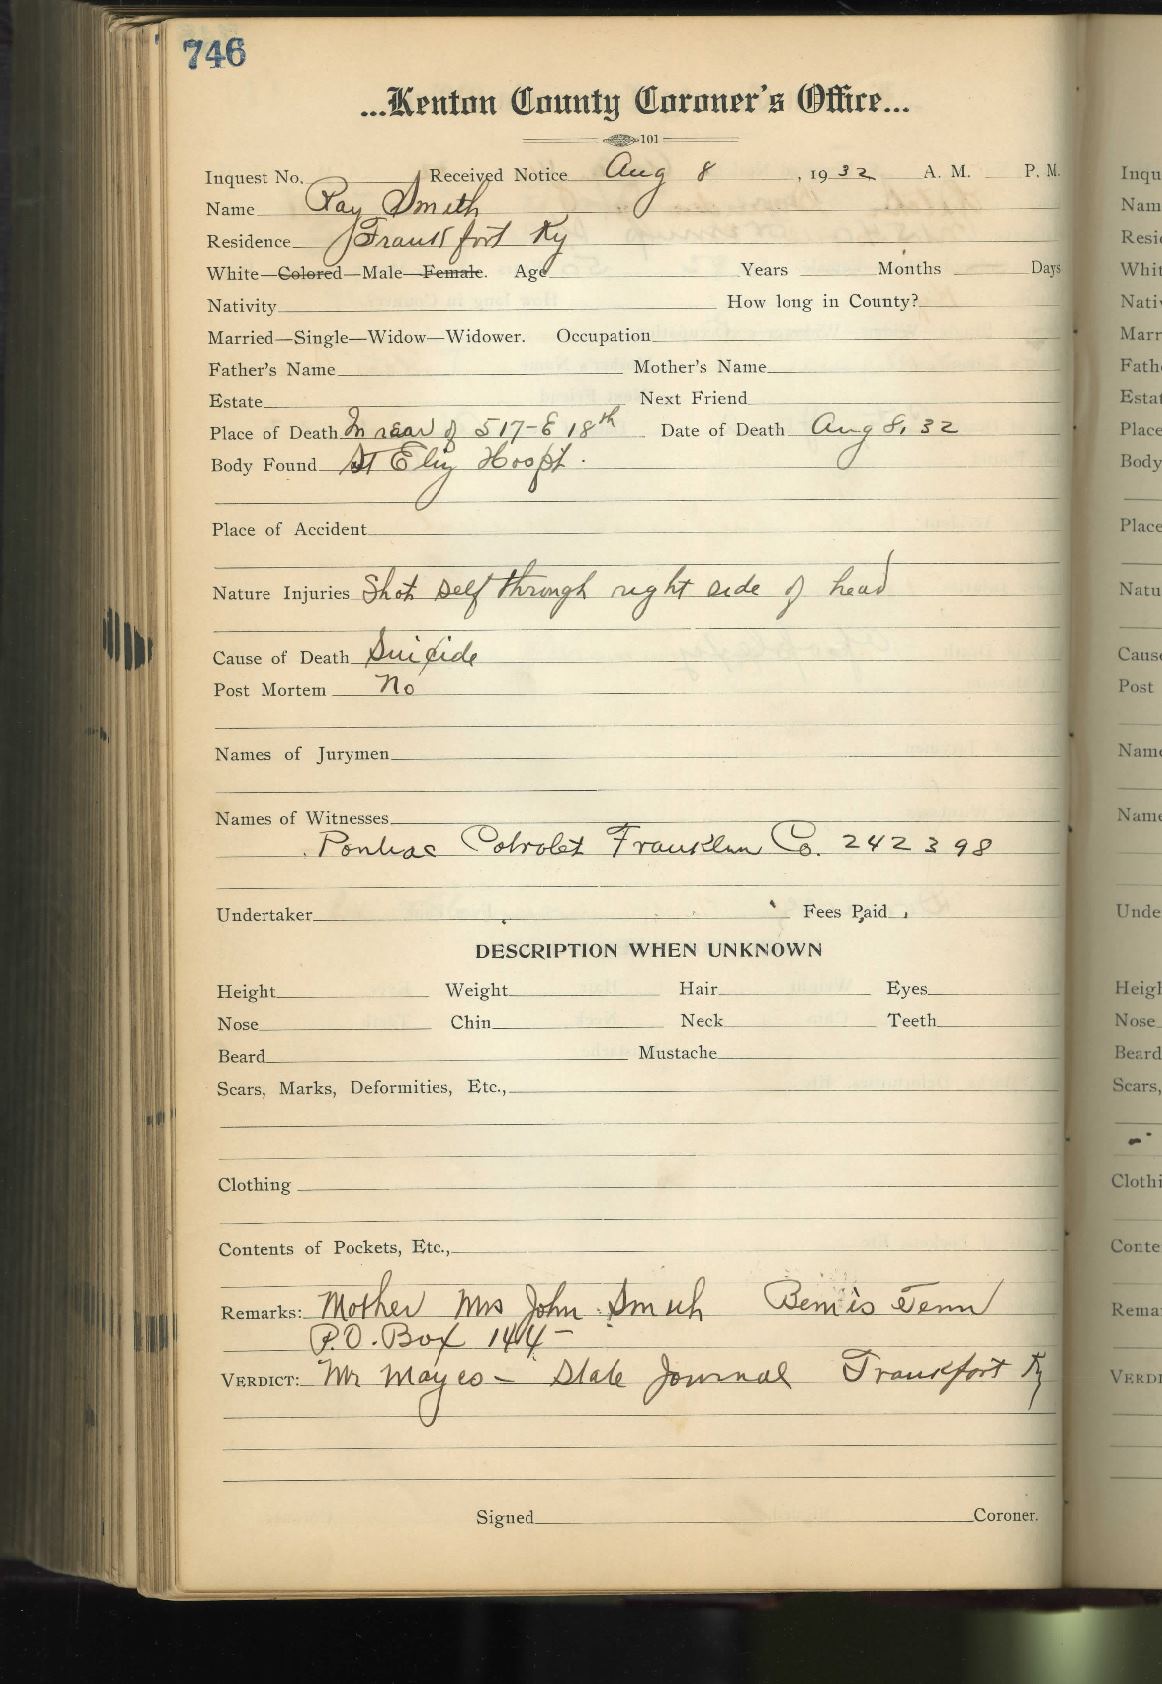 746
...Kenton County Coroner's Office...
101
Inquest No. Received Notice Aug 8, 1932 A. M. P. M.
Name Ray Smith
Residence Frankfort Ky
White—Colored—Male—Female. Age Years Months Days
Nativity How long in County?
Married—Single—Widow—Widower. Occupation
Father's Name Mother's Name
Estate Next Friend
Place of Death In rear of 517-E 18th Date of Death Aug 8, 32
Body Found St Eliz Hospt.
Place of Accident
Nature Injuries Shot self through right side of head
Cause of Death Suicide
Post Mortem No
Names of Jurymen
Names of Witnesses
Pontiac Franklin Co. 242398
Undertaker Fees Paid
DESCRIPTION WHEN UNKNOWN
Height Weight Hair Eyes
Nose Chin Neck Teeth
Beard Mustache
Scars, Marks, Deformities, Etc.,
Clothing
Contents of Pockets, Etc.,
Remarks: Mother Mrs John Smith Bemis Tenn
P.O. Box 144-
VERDICT: Mr Mayes - State Journal Frankfort Ky
Signed Coroner.
Inqu
Nam
Resi
Whit
Nati
Marr
Fath
Estat
Place
Body
Place
Natu
Caus
Post
Name
Name
Unde
Heigh
Nose
Beard
Scars,
Clothi
Conte
Rema
VERDI